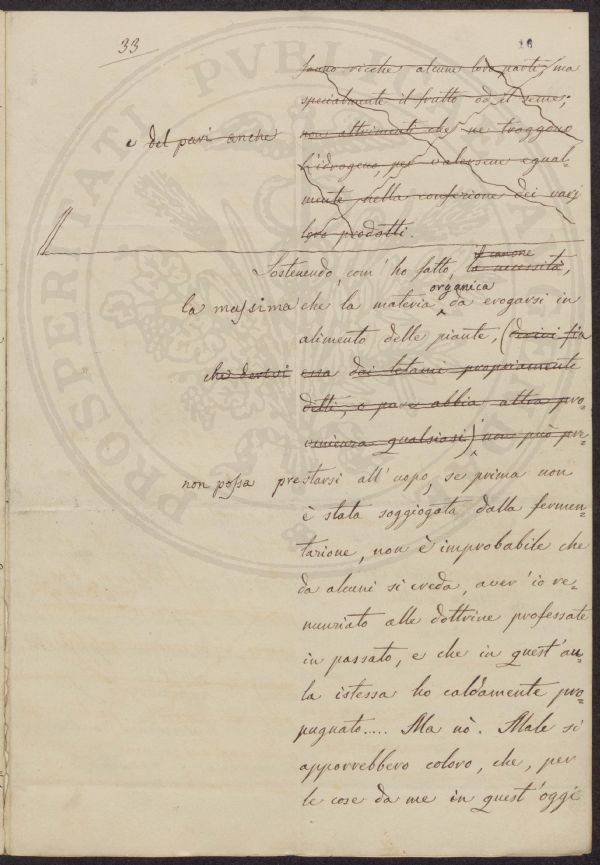 33
16
sanno ricche alcune loro parti, ma
specialmente il frutto od il seme;
e del pari anche non altrimenti che ne traggono
l'idrogeno, per valersene egual=
mente nella confezione dei varj
loro prodotti.
il canone
Sostenendo, com' ho fatto, la necessità,
organica
la massima che la materia da erogarsi in
alimento delle piante, (derivi sia
che derivi essa dai letami propriamente
detti, o pure abbia altra pro=
venienza qualsiasi) non può pre=
non possa prestarsi all' uopo, se prima non
è stata soggiogata dalla fermen=
tazione, non è improbabile che
da alcuni si creda, aver' io re=
nunziato alle dottrine professate
in passato, e che in quest' au=
la istessa ho caldamente pro=
pugnato.... Ma nò. Male si
apporrebbero coloro, che, per
le cose da me in quest' oggi
PROSPERITATI PVBLICAE